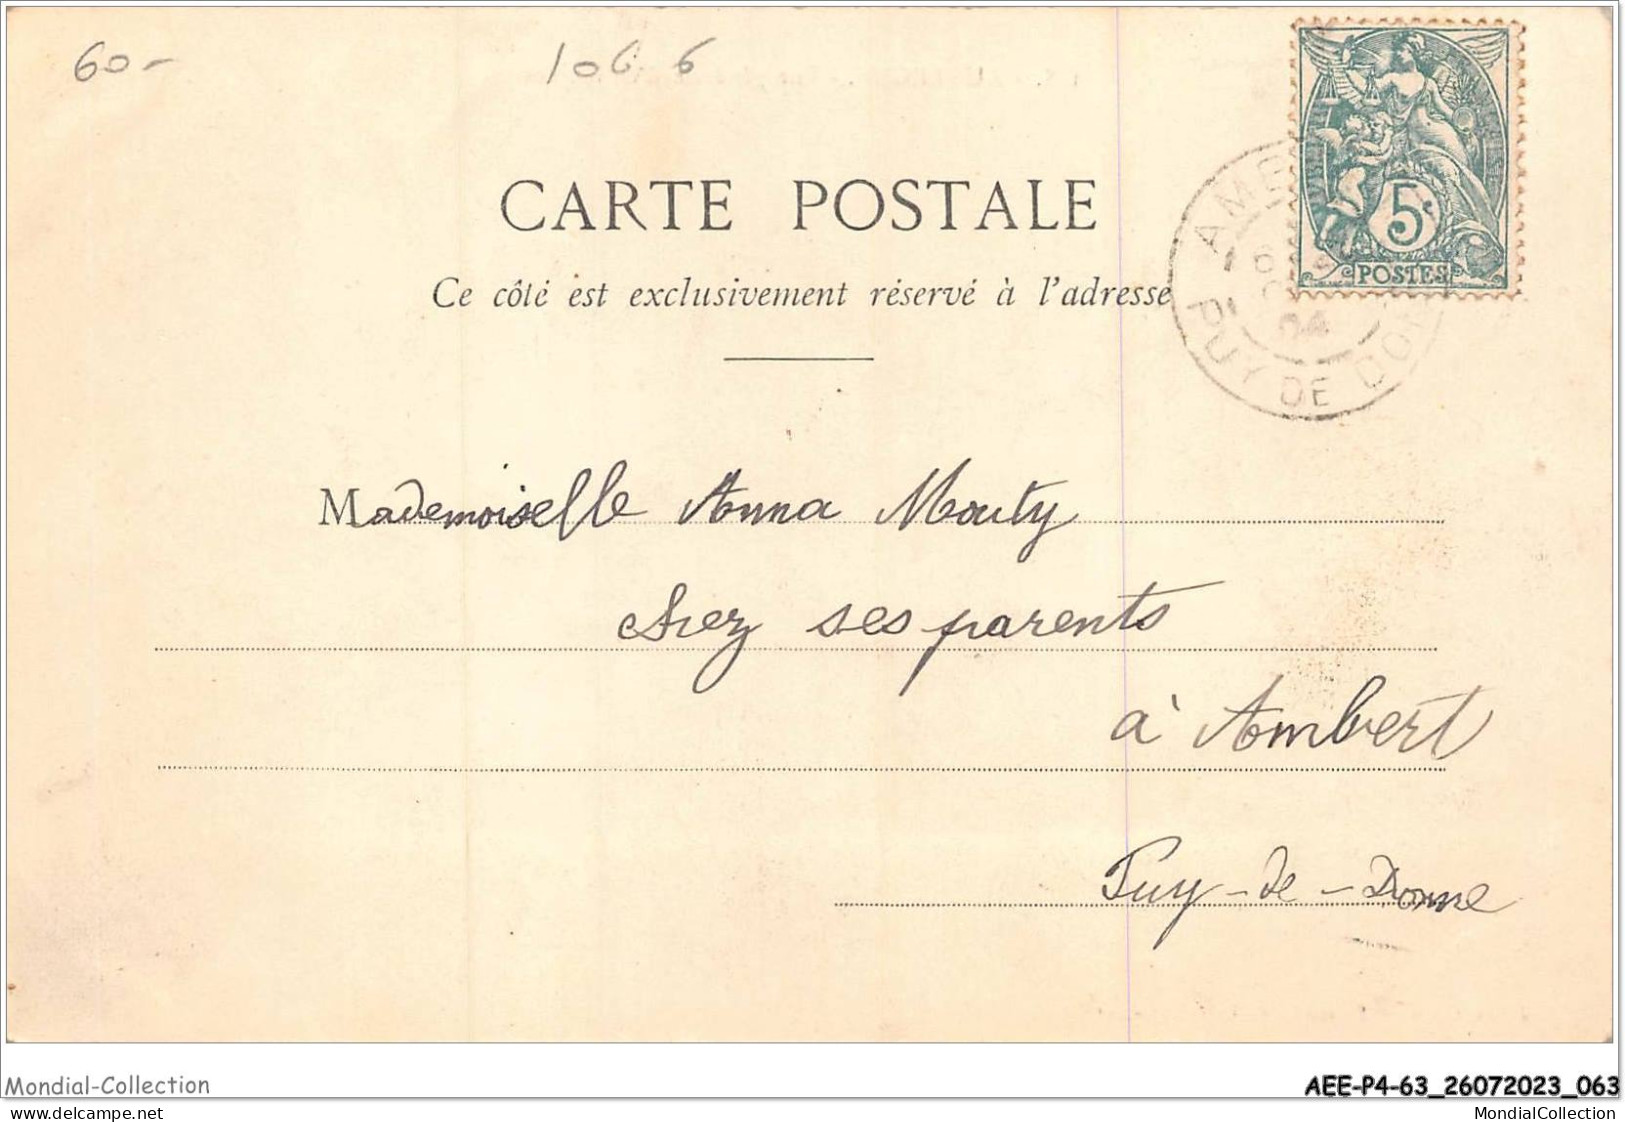 60-
106 6
CARTE POSTALE
Ce côté est exclusivement réservé à l'adresse
5c
POSTES
04
PUY DE DOME
Mademoiselle Anna Mouty
chez ses parents
à Ambert
Puy-de-Dome
Mondial-Collection
AEE-P4-63_26072023_063
delcampe.net
MondialCollection